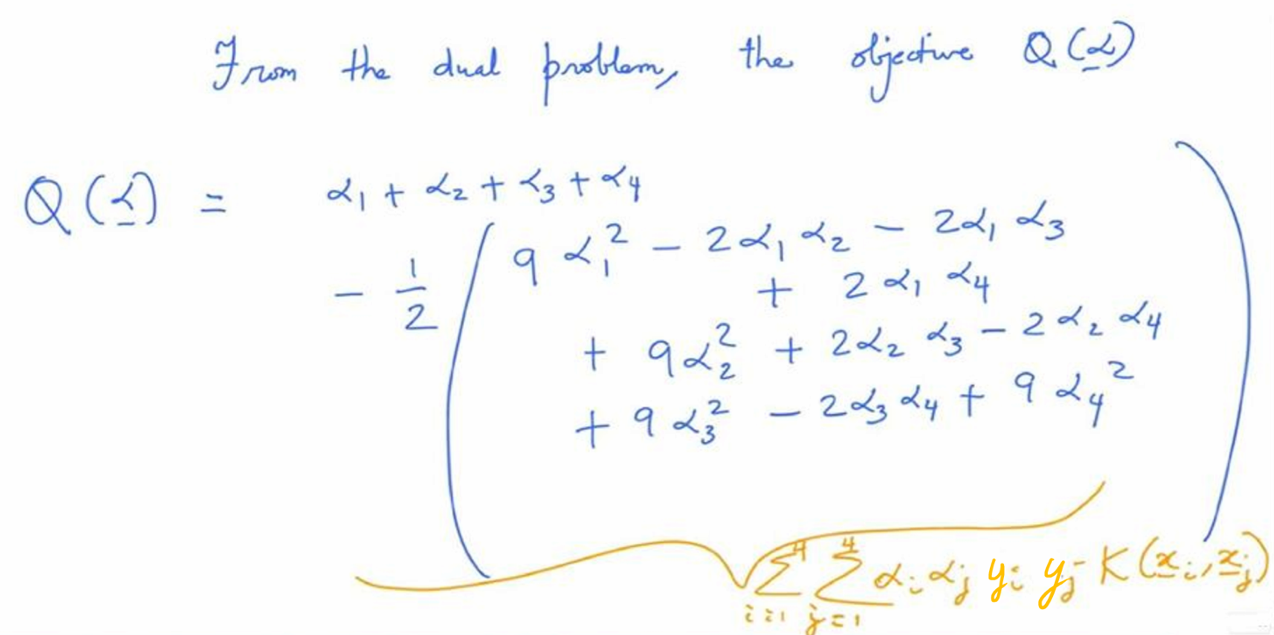 From the dual problem, the objective Q(α)
Q(α) = α₁ + α₂ + α₃ + α₄
- 1/2 ( 9α₁² - 2α₁α₂ - 2α₁α₃
+ 2α₁α₄
+ 9α₂² + 2α₂α₃ - 2α₂α₄
+ 9α₃² - 2α₃α₄ + 9α₄² )
∑_{i=1}^{4} ∑_{j=1}^{4} αᵢ αⱼ yᵢ yⱼ K(xᵢ, xⱼ)